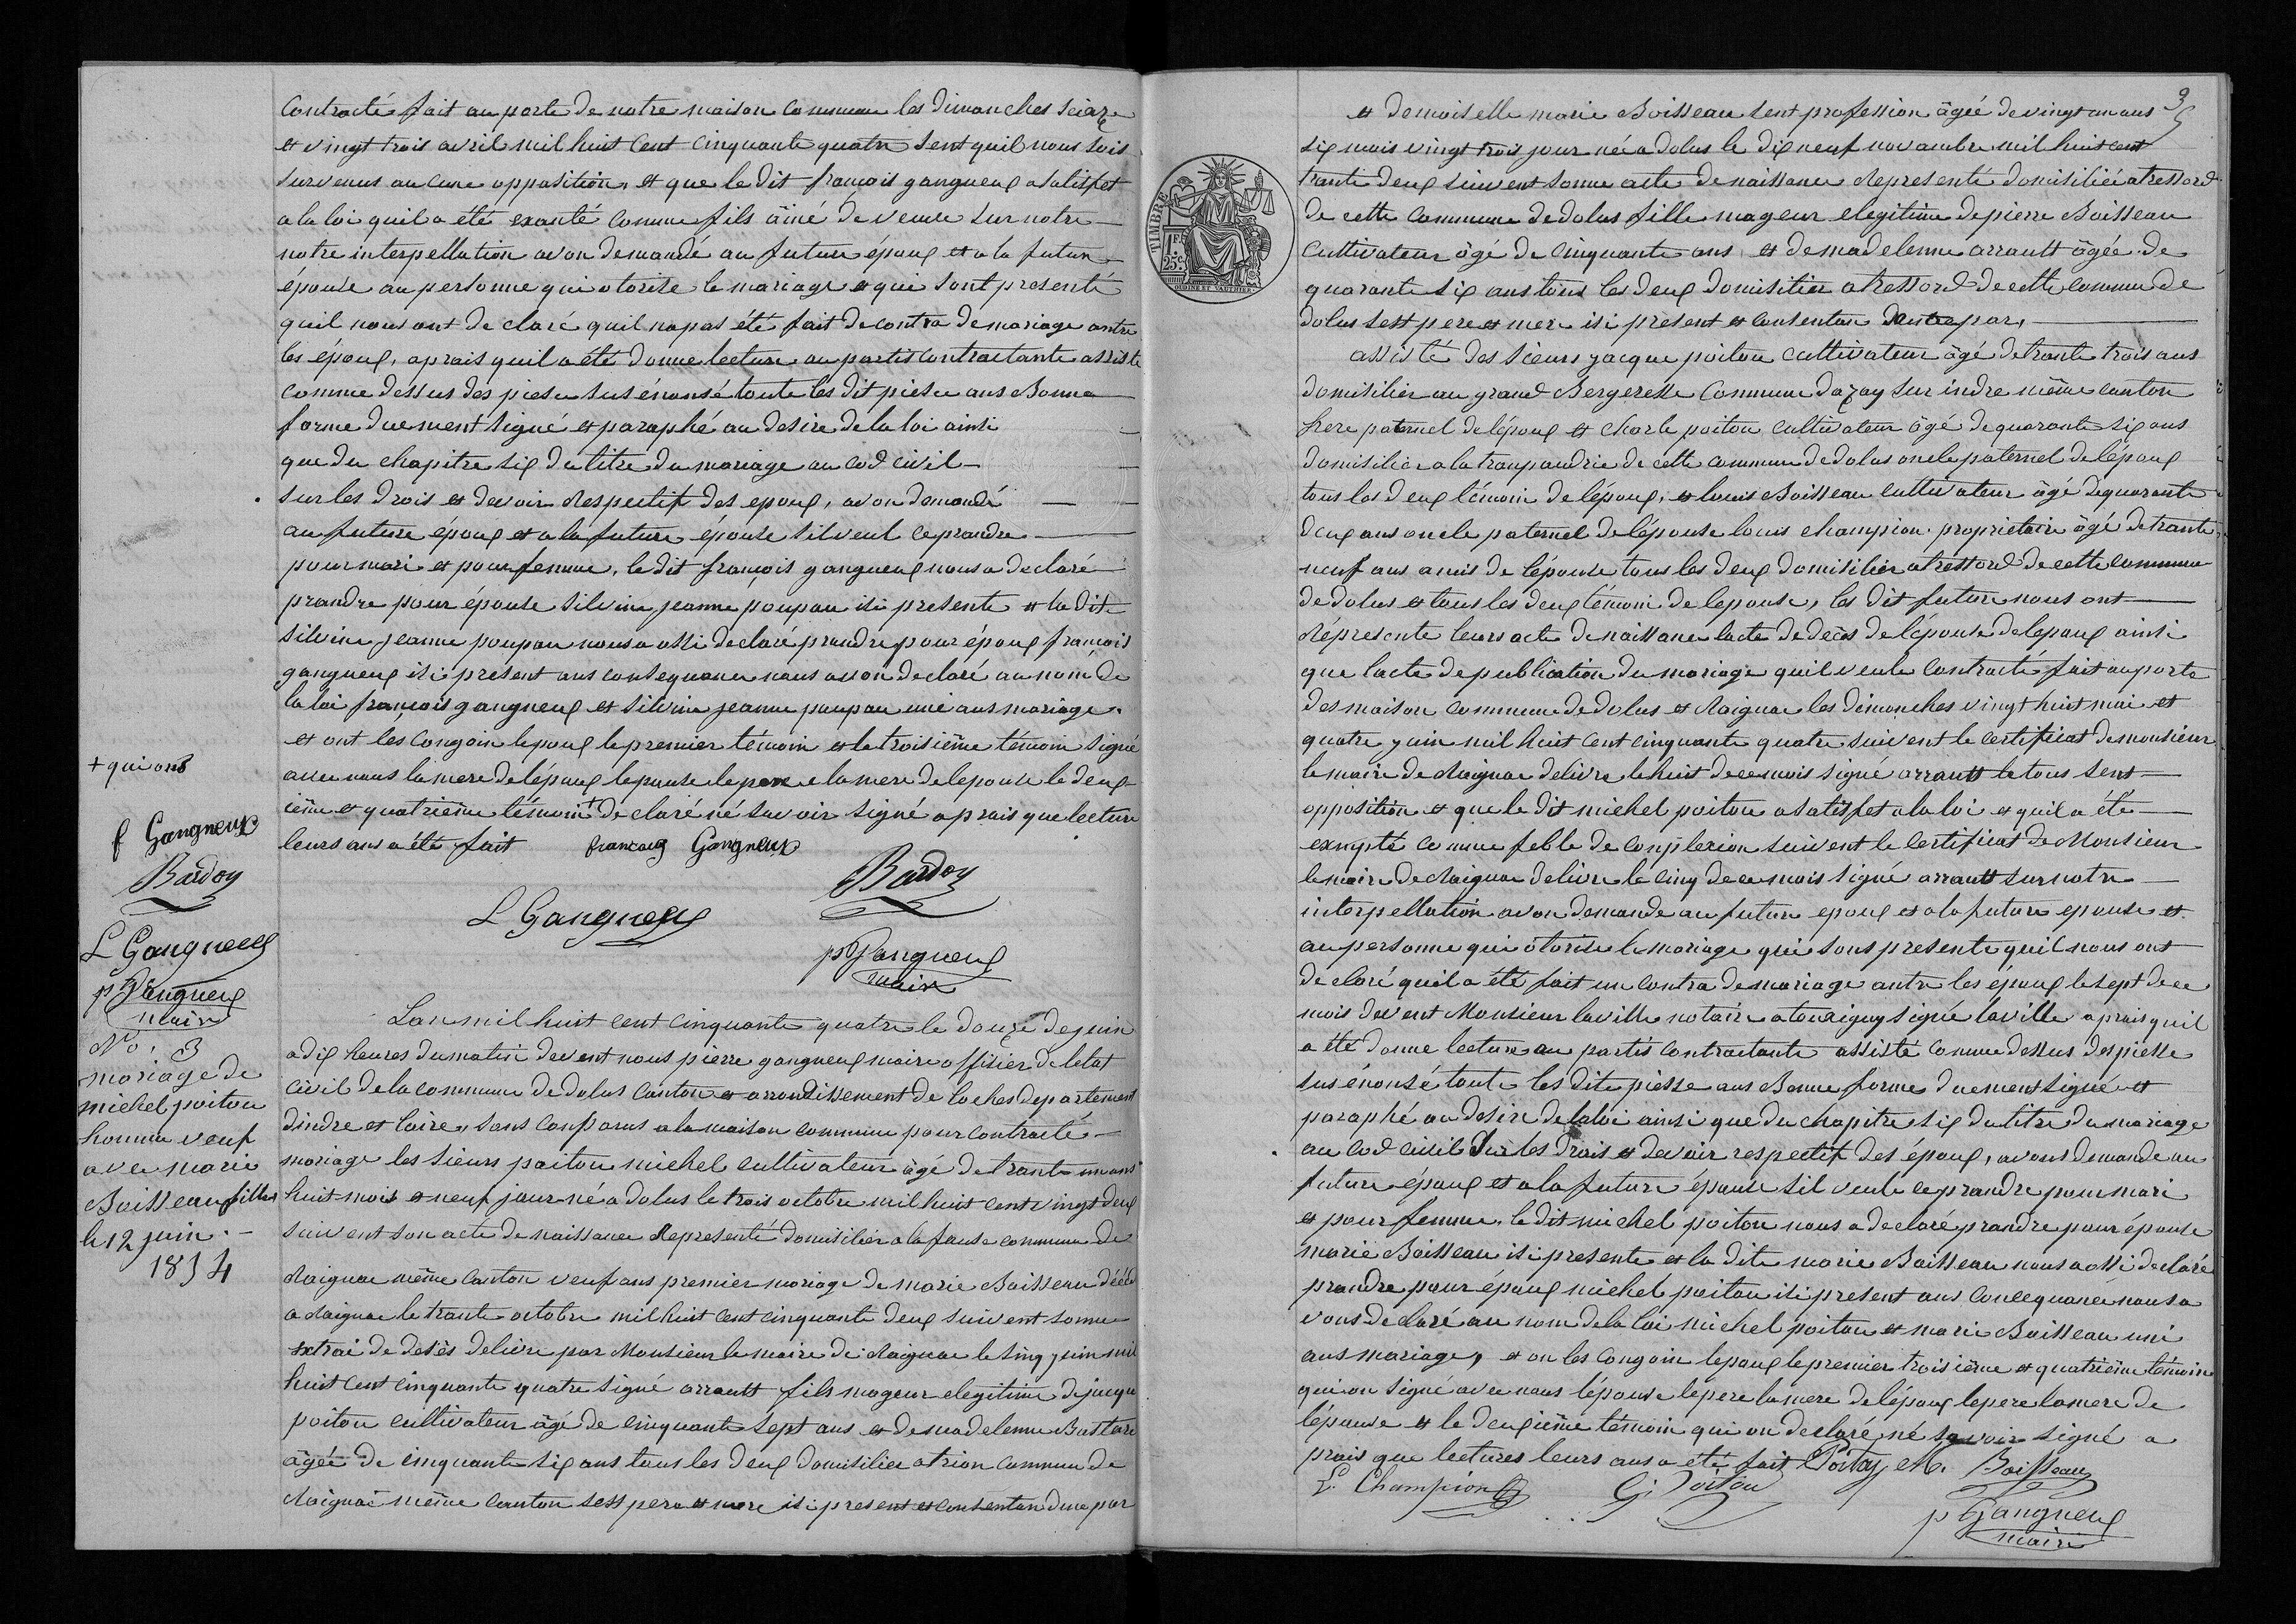 contracté fait au porte de notre maison commune les dimanches seize
et vingt trois avril mil huit cent cinquante quatre sent quil nous sois
survenus aucune opposition, et que le dit françois gangneux a satisfet
a la loi quil a été exanté comme fils âiné de veuve sur notre
notre interpellation avon demandé au future époux et a la future
épouse au personne qui otorise le mariage et qui sont presenté
quil nous ont de claré quil na pas été fait de contra de mariage antre
les époux, aprais quil a été donne lecture au partis contractante assiste
comme dessus des piese sus énonsé toute les dit piese ans Bonne
forme duement signé et paraphé au desire de la loi ainsi
que du chapitre six du titre du mariage au cod civil
sur les drois et devoir respectif des epoux, avon demandé
au future époux et a la future épouse sil veul ce prandre
pour mari et pour femme, le dit françois gangneux nous a declaré
prandre pour épouse silvine jeanne poupau isi presente et la dite
silvine jeanne poupau nous a ossi declaré prandre pour époux françois
gangneux isi present ans consequance nous avon declaré au nom de
la loi françois gangneux et silvine jeanne poupau unié ans mariage.
et ont les congoin lepoux le premier témoin et le troisième témoin signé
avec nous la mere de lépoux lepouse le pere e la mere de lepouse le deux-
ième et quatrième témoin + declaré né savoir signé aprais que lecture
leurs ans a été fait françois Gangneux
Bardou
L Gangneux
p Gangneux
maire
+ qui ont
f Gangneux
Bardou
L Gangneux
p Gangneux
maire
No. 3
mariage de
michel poitou
homme veuf
avec marie
Boisseau fille
le 12 juin
1854
Lan mil huit cent cinquante quatre le douze de juin
a dix heures du matin devent nous pierre gangneux maire offisier de létat
civil de la commune de dolus canton et arrondissement de loches departement
dindre et loire, sons conparus a la maison commune pour contracté
mariage les sieurs poitou michel cultivateur âgé de trante un ans
huit mois et neuf jour né a dolus le trois octobre mil huit cent vingt deux
suivent son acte de naissance représenté domisilier a la fause commune de
chaignae même canton veuf ans premier mariage de marie Boisseau décédé
a chaignae le trante octobre mil huit cent cinquante deux suivent sonne
extrai de desès delivre par Monsieur le maire de chaignae le sinq juin mil
huit cent cinquante quatre signé arrault fils mageur elegitime de jacque
poitou cultivateur âgé de cinquante sept ans et de madelenne Bastare
âgée de cinquante six ans tous les deux domisilier a trion commune de
chaignae même canton sest pere et mere isi present et consentan dune par
9
et demoiselle marie Boisseau sent profession âgée de vingt un ans
six mois vingt trois jour né a dolus le dix neuf novambre mil huit cent
trante deux suivent sonne acte de naissance represente domisiliée a tressord
de cette commune de dolus fille mageur elegitime de pierre Boisseau
cultivateur âgé de cinquante ans, et de madelenne arrault âgée de
quarante six ans tous les deux domisilier a tressord de cette commune de
dolus sest pere et mere isi present et consentan dautre par,
assisté des sieurs jacque poitou cultivateur âgé de trante trois ans
domisilier au grand Bergeresse commune dazay sur indre même canton
frere paternel de lépoux et charle poitou cultivateur âgé de quarante six ans
domisilier a la tranpaudrie de cette commune de dolus oncle paternel de lépoux
tous les deux témoin de lépoux, et louis Boisseau cultivateur âgé de quarante
deux ans oncle paternel de lépouse louis champion propriétaire âgé de trante
neuf ans amis de lépouse tous les deux domisilier a tressord de cette commune
de dolus et tous les deux témoin de lepouse, les dit future nous ont
réprésente leurs acte de naissance lacte de décès de lépouse de lepoux ainsi
que lacte de publication du mariage quil veule contracté fait au porte
des maison commune de dolus et chaignae les dimanches vingt huit mai et
quatre juin mil huit cent cinquante quatre suivent le certificat de monsieur
le maire de chaignae delivre le huit de ce mois signé arrault le tous sent
opposition et que le dit michel poitou a satisfet a la loi et quil a été
exempté comme feble de conplexion suivent le certificat de Monsieur
le maire de chaignae delivre le cinq de ce mois signé arrault sur notre
interpellation avon demande au future epoux et a la future epouse et
au personne qui otorise le mariage qui sons presente quil nous ont
declaré quil a été fait un contra de mariage antre les époux le sept de ce
mois devent Monsieur laville notaire a tauxigny signé laville aprais quil
a été donne lecture au partis contractante assisté comme dessus des piesse
sus énonsé toute les dite piesse ans Bonne forme duement signé et
paraphé au desire de la loi ainsi que du chapitre six du titre du mariage
au cod civil sur les drois et devoir respectif des époux, avons demande au
future époux et a la future épouse sil veule ce prandre pour mari
et pour femme, le dit michel poitou nous a declaré prandre pour épouse
marie Boisseau isi presente et la dite marie Boisseau nous a ossi declaré
prandre pour époux michel poitou isi present ans concequance nous a
vons declaré au nom de la loi michel poitou et marie Boisseau unié
ans mariage, et on les congoin lepoux le premier troisième et quatrième témoin
qui on signé avec nous lépouse le pere la mere de lépoux le pere la mere de
lépouse et le deuxième témoin qui on declaré né savoir signé a
prais que lectures leurs ans a été fait Poitou M. Boisseau
L. Champion G. Poitou
p Gangneux
maire
TIMBRE
1 F.
25 c.